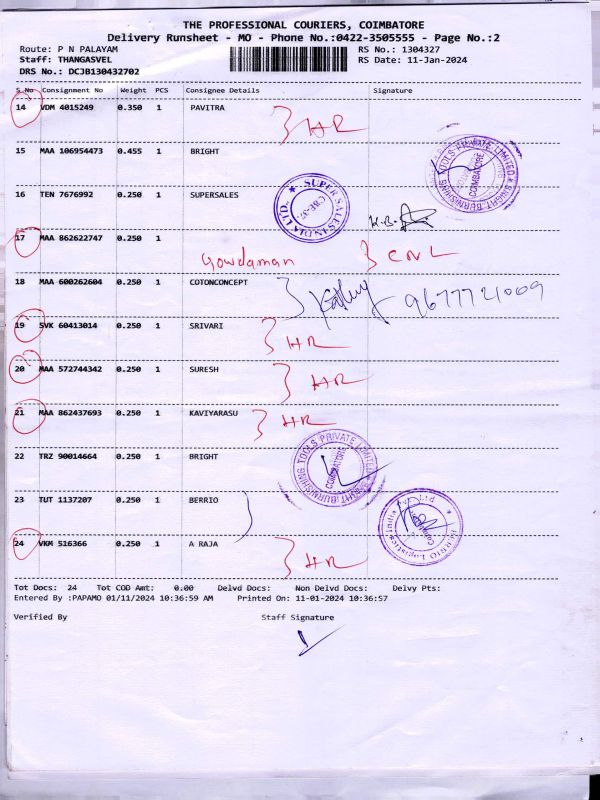 THE PROFESSIONAL COURIERS, COIMBATORE
Delivery Runsheet - MO - Phone No.:0422-3505555 - Page No.:2
Route: P N PALAYAM
RS No.: 1304327
Staff: THANGASVEL
RS Date: 11-Jan-2024
DRS No.: DCJB130432702
S.No Consignment No Weight PCS Consignee Details Signature
14 VDM 4015249 0.350 1 PAVITRA
HR
15 MAA 106954473 0.455 1 BRIGHT
BRIGHT BURNISHING TOOLS PRIVATE LIMITED
COIMBATORE
16 TEN 7676992 0.250 1 SUPERSALES
SUPER SALES INDIA LTD.
CBE-37.
17 MAA 862622747 0.250 1
Gowdaman CNL
18 MAA 600262604 0.250 1 COTONCONCEPT
9677721009
19 SVK 60413014 0.250 1 SRIVARI
HR
20 MAA 572744342 0.250 1 SURESH
HR
21 MAA 862437693 0.250 1 KAVIYARASU
HR
22 TRZ 90014664 0.250 1 BRIGHT
BRIGHT BURNISHING TOOLS PRIVATE LIMITED
COIMBATORE
23 TUT 1137207 0.250 1 BERRIO
BERRIO Logistics India Pvt Ltd
24 VKM 516366 0.250 1 A RAJA
HR
Tot Docs: 24 Tot COD Amt: 0.00 Delvd Docs: Non Delvd Docs: Delvy Pts:
Entered By :PAPAMO 01/11/2024 10:36:59 AM Printed On: 11-01-2024 10:36:57
Verified By Staff Signature